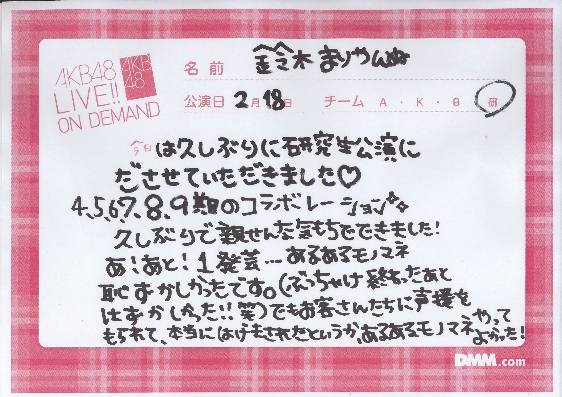 AKB48
LIVE!!
ON DEMAND
AKB
48
名前 鈴木まりやんぬ
公演日 2月18日 チーム A・K・B・研
今日は久しぶりに研究生公演に
ださせていただきました♡
4,5,6,7,8,9期のコラボレーション
久しぶりで新せんな気もちでできました!
あ!あと!1発芸…あるあるモノマネ
恥ずかしかったです。(ぶっちゃけ終わったあと
はずかしかった!!笑)でもお客さんたちに声援を
もられて、本当にはげまされたというか、あるあるモノマネやって
よかった!
DMM.com